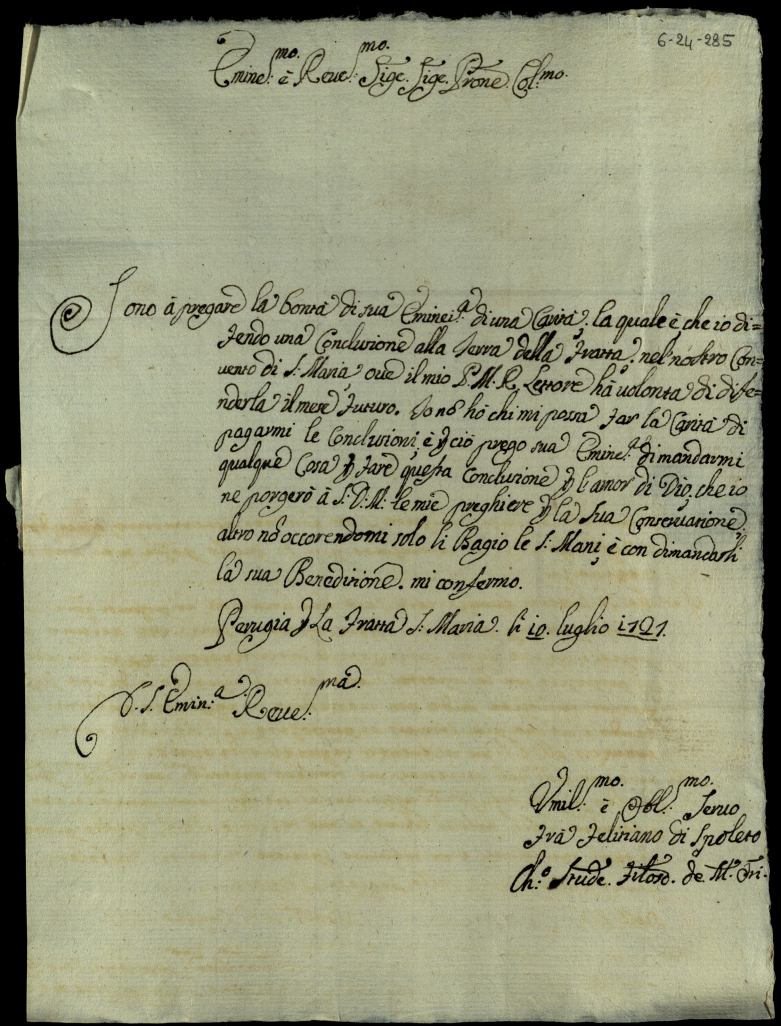 6-24-285
Emine:mo. è Reue:mo. Sige. Sige. Prone Col:mo.
Sono à pregare la bontà di sua Eminei:a di una Carità. la quale è che io di=
fendo una Conclusione alla Terra della Fratta, nel nostro Con=
uento di S. Maria oue il mio P. M. R. Lettore hà uolonta di dife=
nderla il mese futuro. Io nò hò chi mi possa far la Carità di
pagarmi le Conclusioni, è p ciò prego sua Emine:a di mandarmi
qualque Cosa p fare questa Conclusione p l'amor di Dio, che io
ne porgerò à S: D: M: le mie preghiere p la sua Conseruatione,
altro nò occorendomi solo li Bagio le S: Mani, è con dimandarli
la sua Beneditione. mi confermo.
Perugia p La Fratta S: Maria. li 10. luglio 1727.
D. S. Emin:a Reue:ma
Vmil:mo. è Obl:mo. Seruo
Frà Felitiano di Spoleto
Ch:o Stude. Filoso. de M: